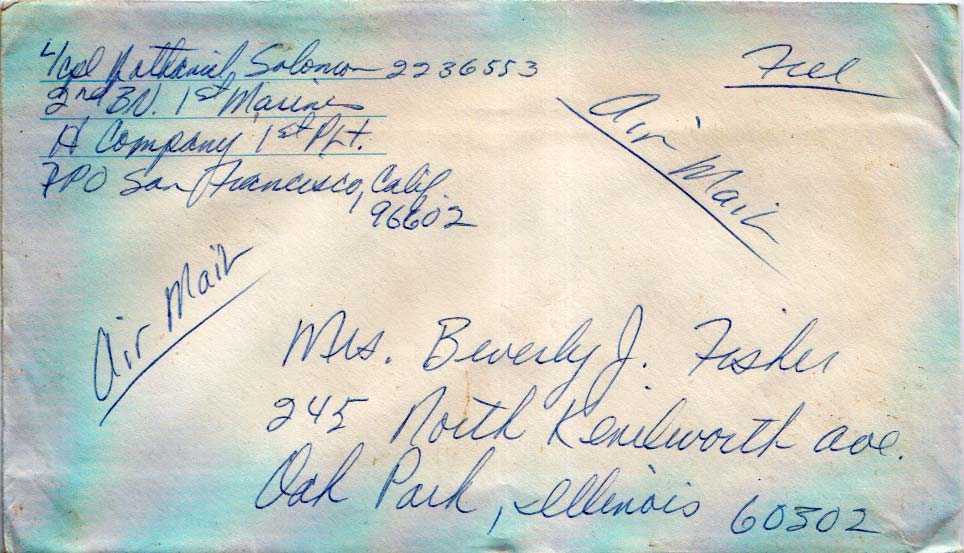 L/cpl Nathaniel Solomon 2236553
2nd BN. 1st Marines
H Company 1st PLt.
FPO San Francisco, Calif.
96602
Free
Air Mail
Air Mail
Mrs. Beverly J. Fisher
245 North Kenilworth ave.
Oak Park, Illinois 60302